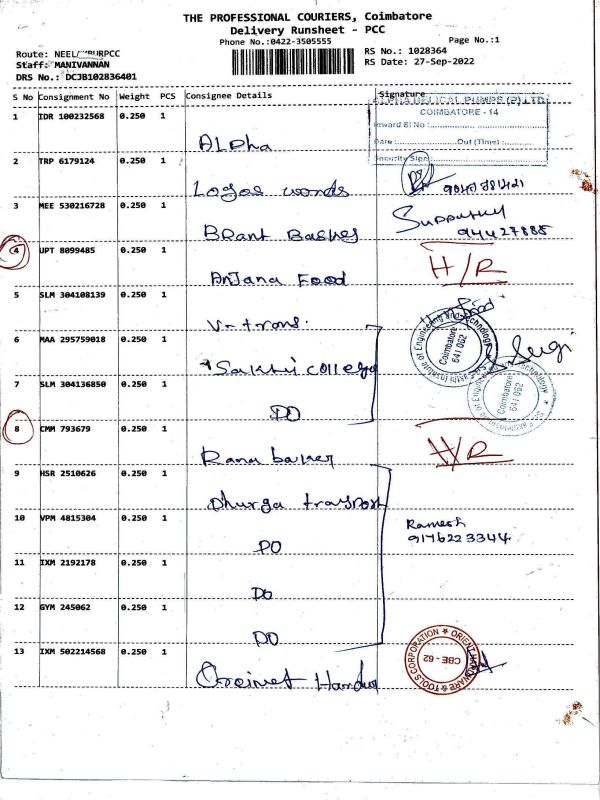 THE PROFESSIONAL COURIERS, Coimbatore
Delivery Runsheet - PCC
Phone No.:0422-3505555
Page No.:1
Route: NEEL
RS No.: 1028364
Staff: MANIVANNAN
RS Date: 27-Sep-2022
DRS No.: DCJB102836401
S No Consignment No Weight PCS Consignee Details Signature
1 IDR 100232568 0.250 1 ALPha
ALPHA HELICAL PUMPS (P) LTD
COIMBATORE - 14
Inward Sl No :
Date : Out (Time) :
Security Sign
2 TRP 6179124 0.250 1 Logos words
3 MEE 530216728 0.250 1 Brant Baskes
94427888
4 UPT 8099485 0.250 1 Anjana Food H/R
5 SLM 304108139 0.250 1 V-trans.
6 MAA 295759018 0.250 1 Sakthi college
Coimbatore
641 062
7 SLM 304136850 0.250 1 DO
Coimbatore
641 062
8 CMM 793679 0.250 1 Rana baker H/R
9 HSR 2510626 0.250 1 Dhurga transport
10 VPM 4815304 0.250 1 DO
Ramesh
9176223344
11 IXM 2192178 0.250 1 Do
12 GYM 245062 0.250 1 DO
13 IXM 502214568 0.250 1
ORIENT HARDWARE & TOOLS CORPORATION
CBE - 62